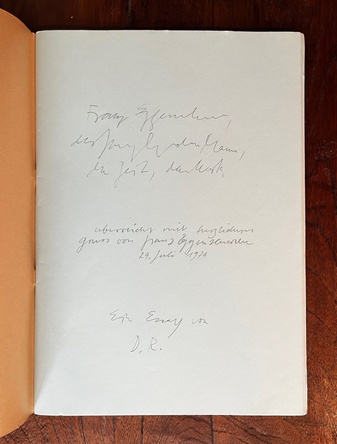 Franz Eggenschwiler,
der Mann,
die Zeit, das Werk.
überreicht mit herzlichem
gruss von franz Eggenschwiler
29. Juli 1971
Ein Essay von
D. R.